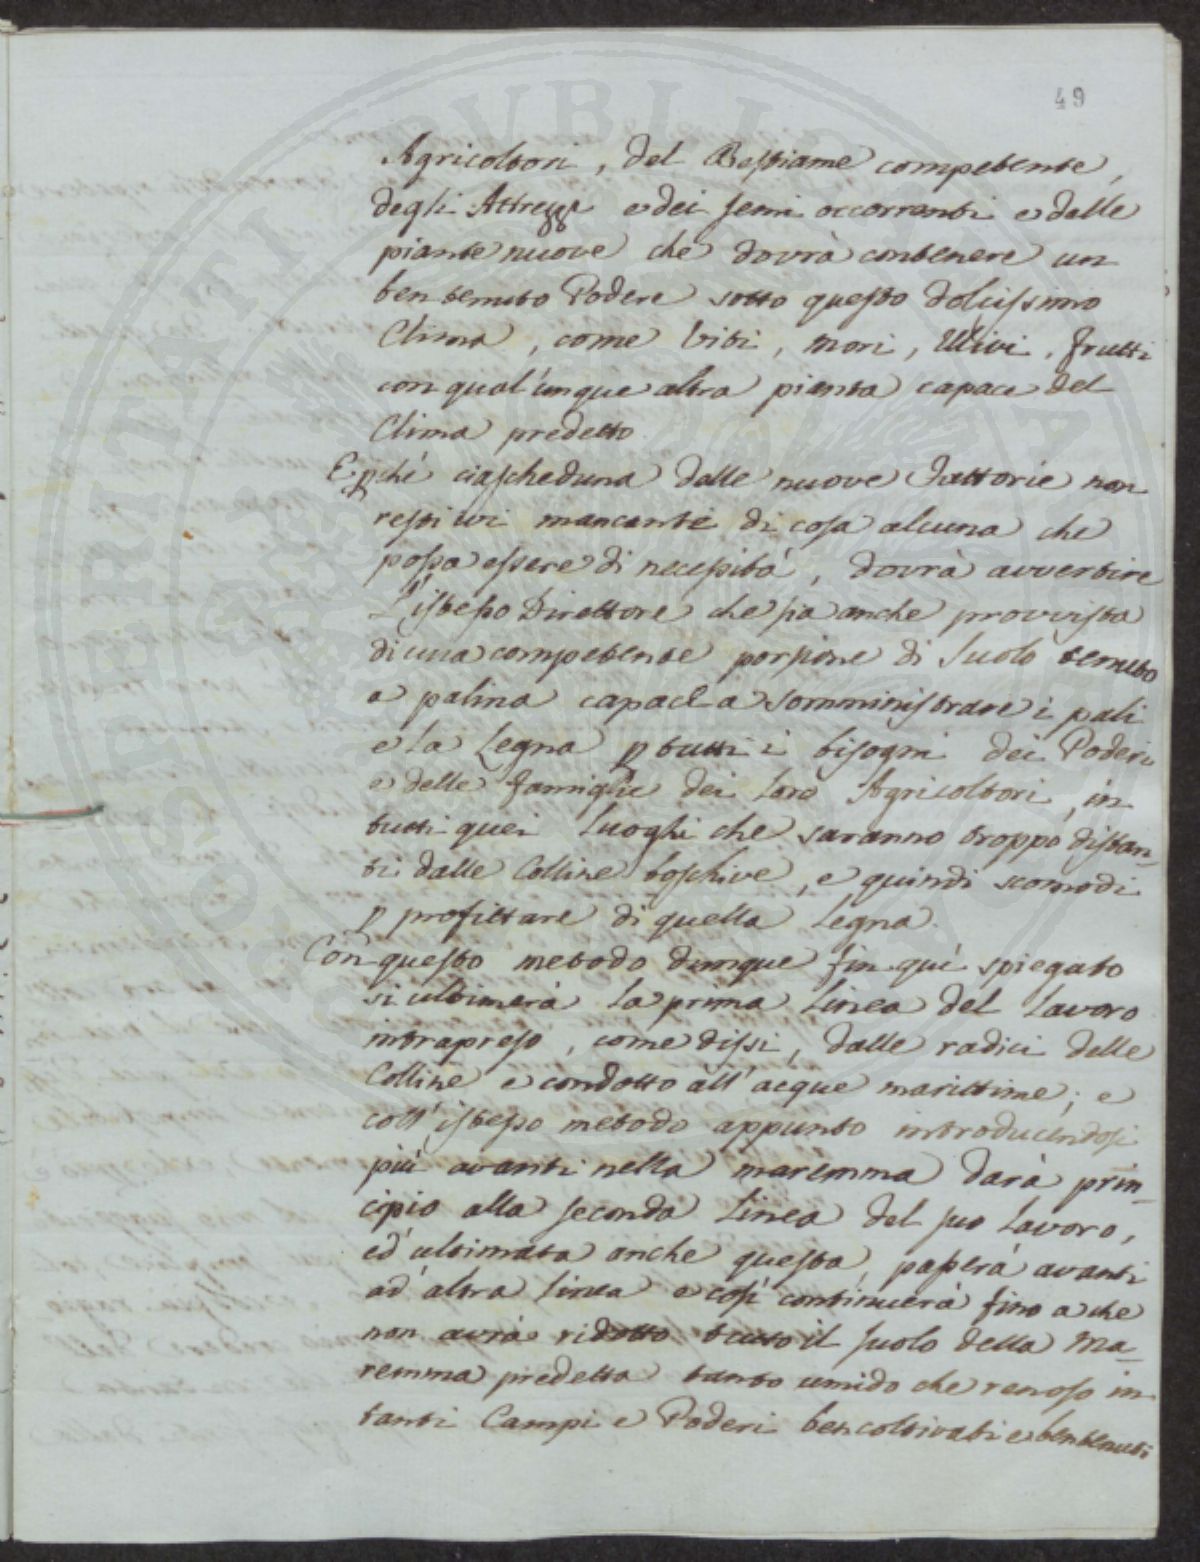 49
Agricoltori, del Bestiame competente,
degli Attrezzi e dei semi occorrenti e dalle
piante nuove che dovrà contenere un
ben tenuto Podere sotto questo dolcissimo
Clima, come Viti, mori, Ulivi, frutti
con qual'unque altra pianta capace del
Clima predetto.
E pchè ciascheduna delle nuove Fattorie non
resti ivi mancante di cosa alcuna che
possa essere di necessità, dovrà avvertire
l'istesso Direttore che sia anche provvista
di una competente porzione di suolo tenuto
a palina capace a somministrare i pali
e la Legna p tutti i bisogni dei Poderi
e delle famiglie dei loro Agricoltori, in
tutti quei luoghi che saranno troppo distan-
ti dalle Colline boschive, e quindi scomodi
p profittare di quella Legna.
Con questo metodo dunque fin quì spiegato
si ultimerà la prima Linea del lavoro
intrapreso, come dissi, dalle radici delle
Colline e condotto all'acque marittime; e
coll'istesso metodo appunto introducendosi
più avanti nella maremma darà prin-
cipio alla seconda Linea del suo lavoro,
ed ultimata anche questa, passerà avanti
ad altra linea e così continuerà fino a che
non avrà ridotto tutto il suolo della Ma-
remma predetta tanto umido che renoso in
tanti Campi e Poderi ben coltivati e ben tenuti
PROSPERITATI PVBLICAE